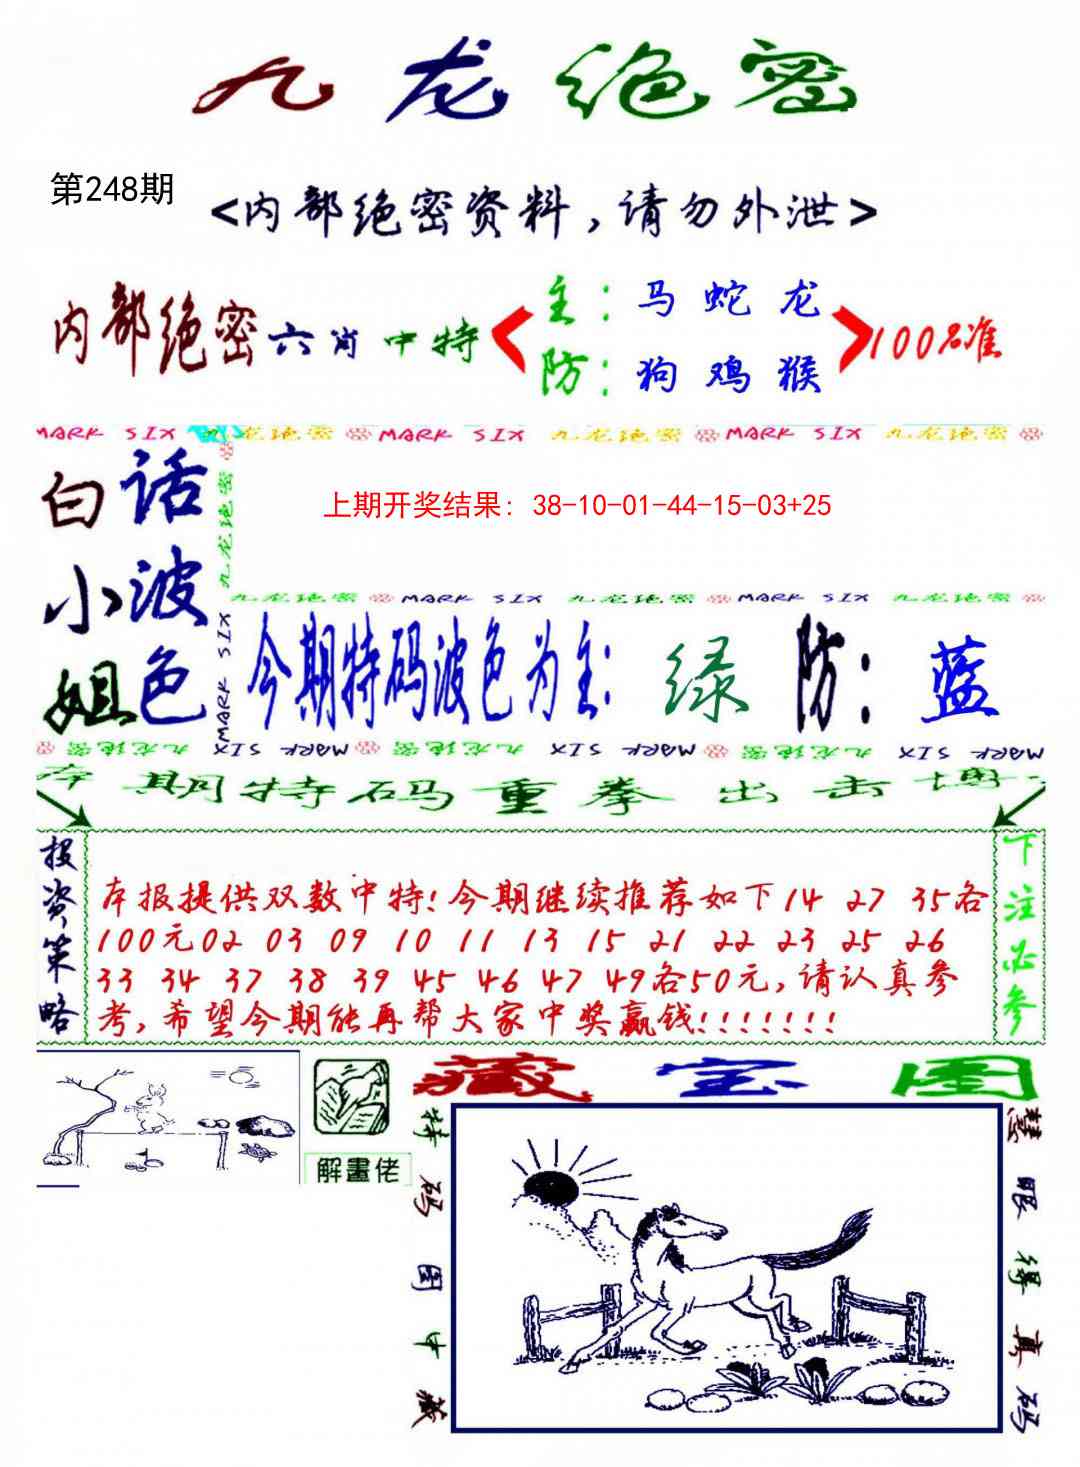 九龙绝密
第248期
<内部绝密资料,请勿外泄>
内部绝密六肖中特
主:马 蛇 龙
防:狗 鸡 猴
100%准
MARK SIX 九龙绝密 MARK SIX 九龙绝密 MARK SIX 九龙绝密
九龙绝密 MARK SIX
白小姐
话波色
上期开奖结果: 38-10-01-44-15-03+25
九龙绝密 MARK SIX 九龙绝密 MARK SIX 九龙绝密
今期特码波色为主:绿 防:蓝
九龙绝密 MARK SIX 九龙绝密 MARK SIX 九龙绝密 MARK SIX
本期特码重拳出击博
投资策略
本报提供双数中特!今期继续推荐如下14 27 35各
100元02 03 09 10 11 13 15 21 22 23 25 26
33 34 37 38 39 45 46 47 49各50元,请认真参
考,希望今期能再帮大家中奖赢钱!!!!!!!
下注必参
解畫佬
藏宝图
特码图中藏
慧眼得真码